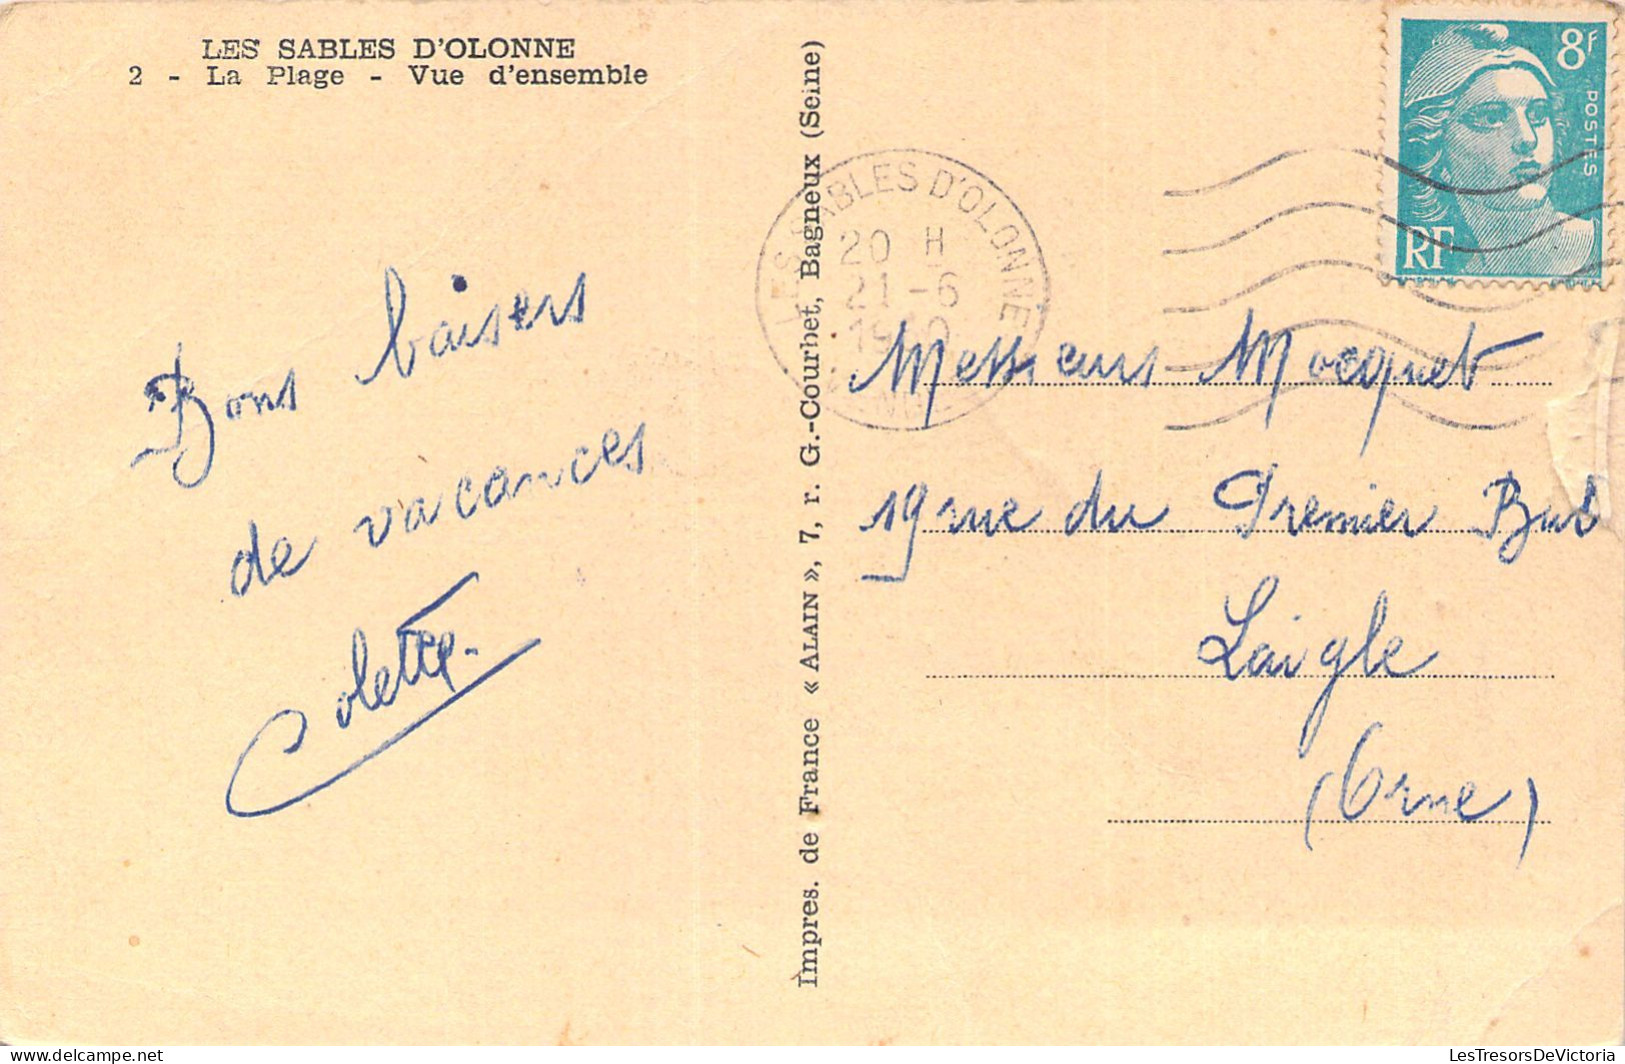 LES SABLES D'OLONNE
2 - La Plage - Vue d'ensemble
Bons baisers
de vacances
Colette.
Impres. de France « ALAIN », 7, r. G.-Courbet, Bagneux (Seine)
LES SABLES D'OLONNE
20 H
21 -6
8F
POSTES
RF
Messieurs Mocquet
19 rue du Premier Bub
Laigle
(Orne)
delcampe.net
LesTresorsDeVictoria